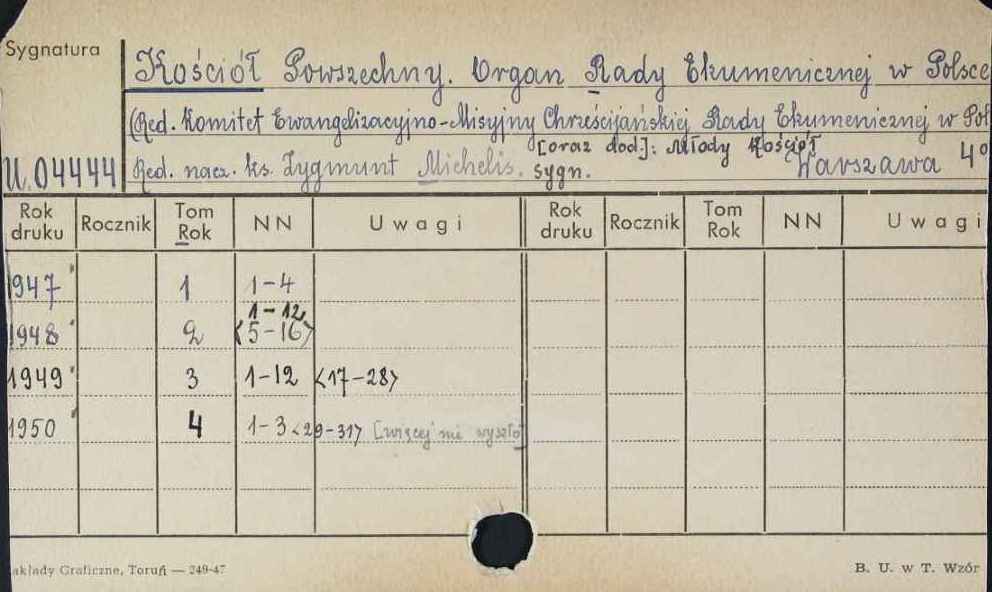 Sygnatura
Kościół Powszechny. Organ Rady Ekumenicznej w Polsce
(Red. Komitet Ewangelizacyjno-Misyjny Chrześcijańskiej Rady Ekumenicznej w Pol
[oraz dod.]: Młody Kościół
U.04444 Red. nacz. ks. Zygmunt Michelis. sygn. Warszawa 4°
Rok druku Rocznik Tom Rok NN Uwagi Rok druku Rocznik Tom Rok NN Uwagi
1947 1 1-4
1-12
1948 2 <5-16>
1949 3 1-12 <17-28>
1950 4 1-3 <29-31> [więcej nie wyszło]
akłady Graficzne, Toruń — 249-47 B. U. w T. Wzór